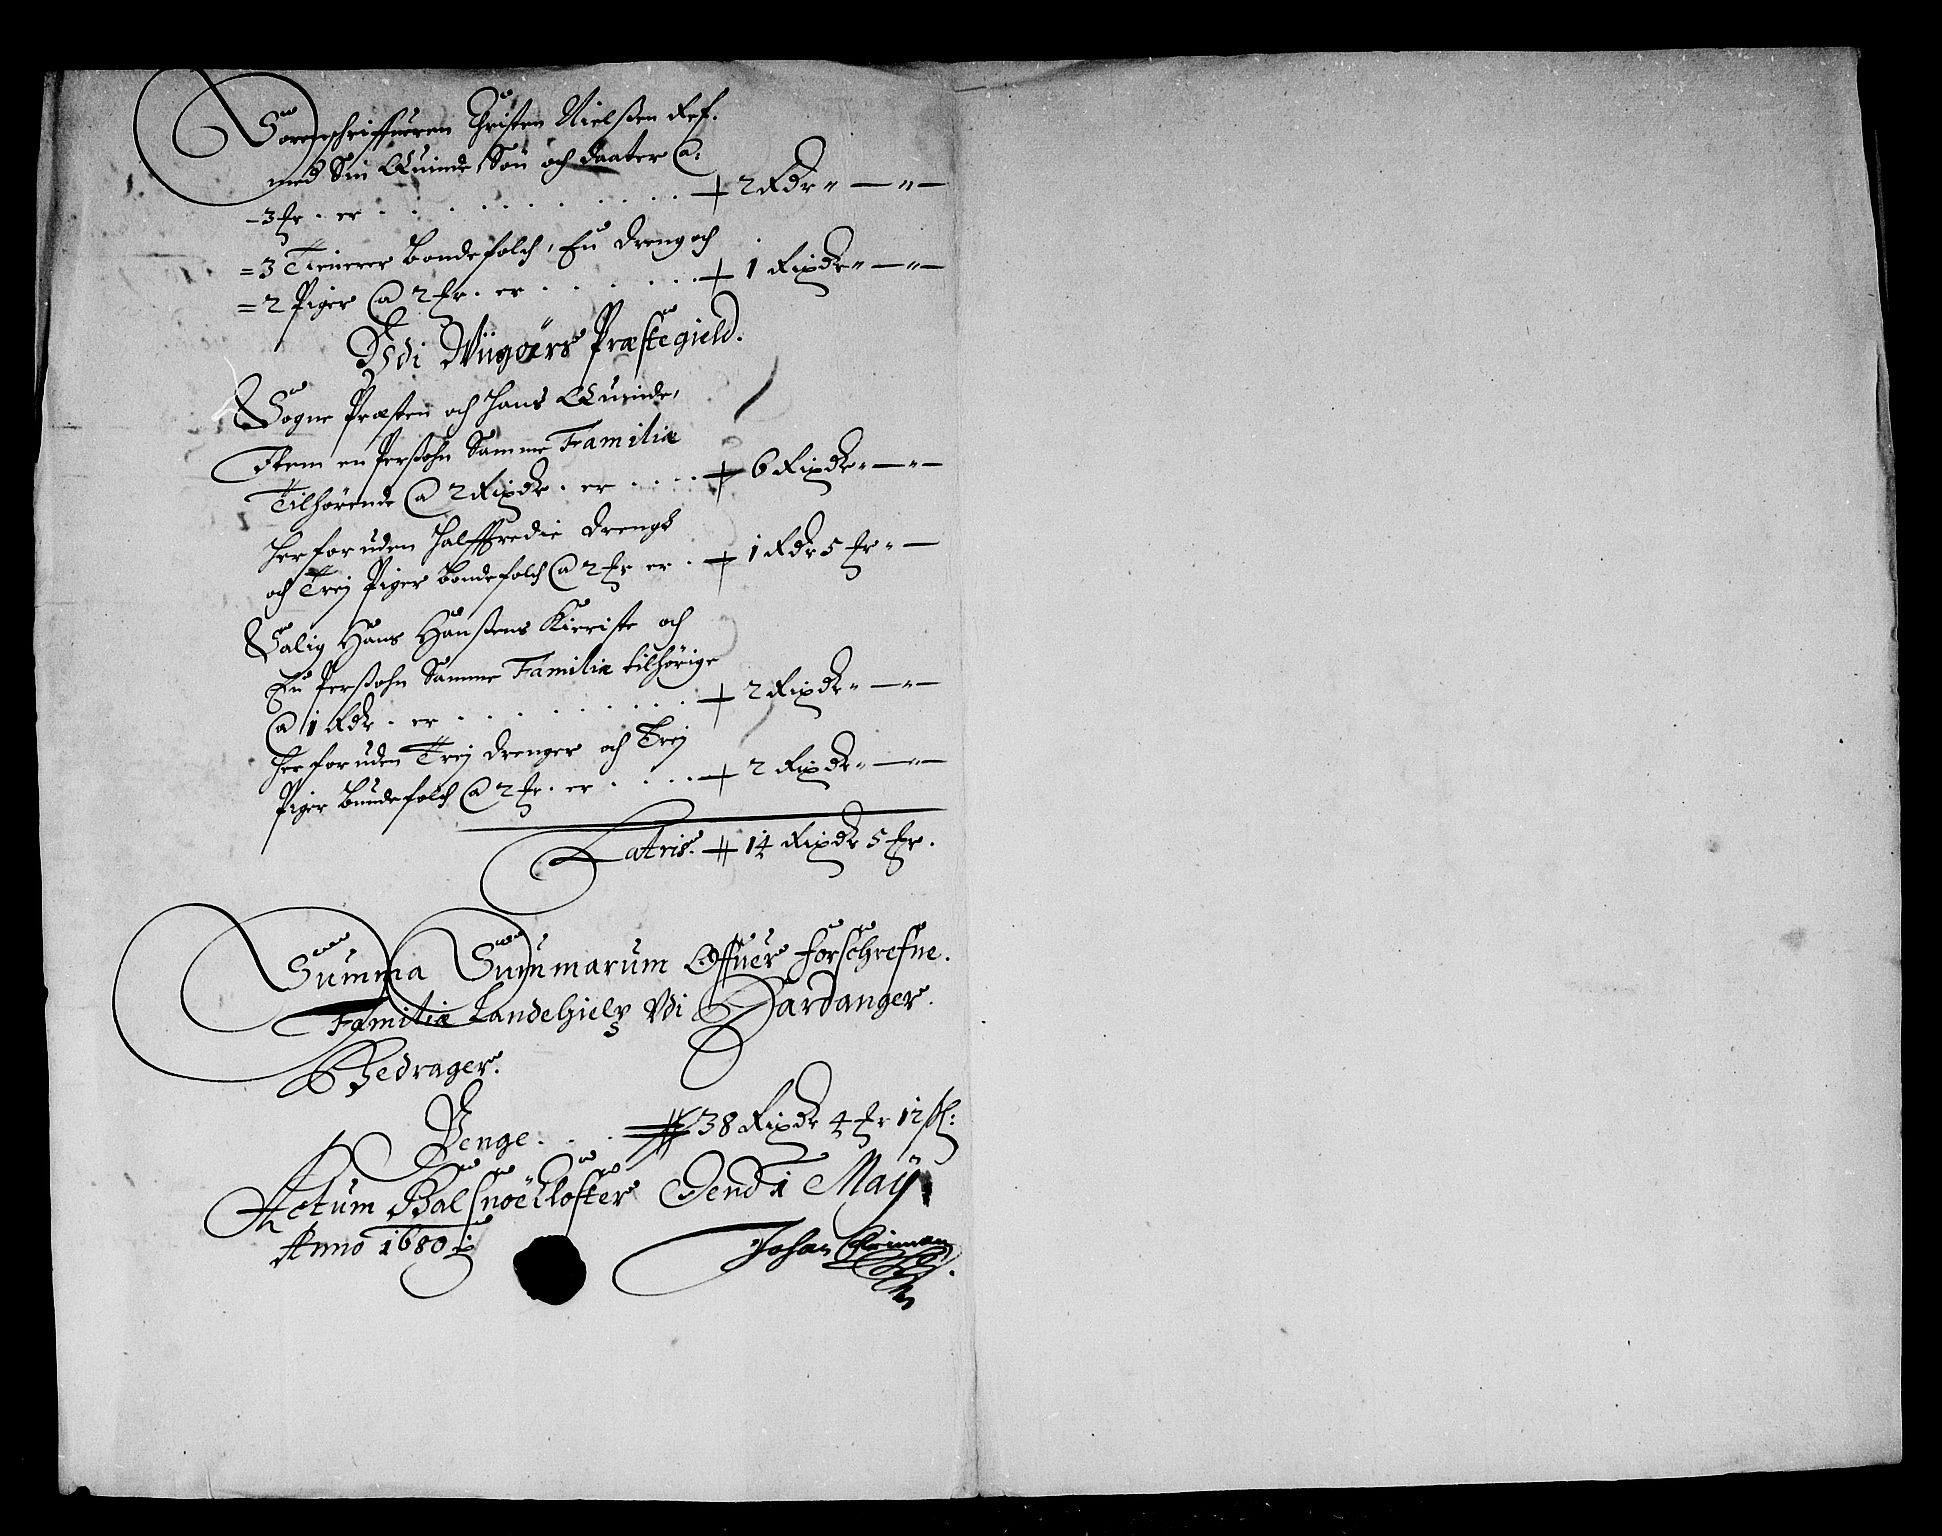 Sorenschriffueren Christen Nielsen Ref.
med Sin Quinde, Søn och daater @:
- 3 Hr . er . . . . . . . . . . + 2 Rdr „ — „ —
= 3 Tienerer bondefolch, En dreng och
= 2 Piger @ 2 Hr . er . . . . . . + 1 Rixdr „ — „ —
Udi Wiigøers Præstegield.
Sogne Præsten och hans Quinde,
Item en Persohn Samme Familiæ
Tilhørende @ 2 Rixdr . er . . . . + 6 Rixdr „ — „ —
her foruden halffredie drengh
och Trej Piger bondefolch @ 2 Hr er . + 1 Rdr 5 Hr „ —
Salig Hans Hanssens Kieriste och
En Persohn Samme Familiæ tilhørige
@ 1 Rdr . er . . . . . . . . + 2 Rixdr „ — „ —
her foruden Trej drenger och Trej
Piger bundefolch @ 2 Hr . er . . . . + 2 Rixdr „ — „ —
Latris. + 14 Rixdr 5 Hr .
Summa Summarum Offuer forschrefne.
Familiæ Landehielp Udi Hardanger.
Bedrager.
Penge . . . 38 Rixdr 4 Hr 12 sh:
Actum Halsnøe Kloster Dend 1 Maÿ
Anno 1680
Johan